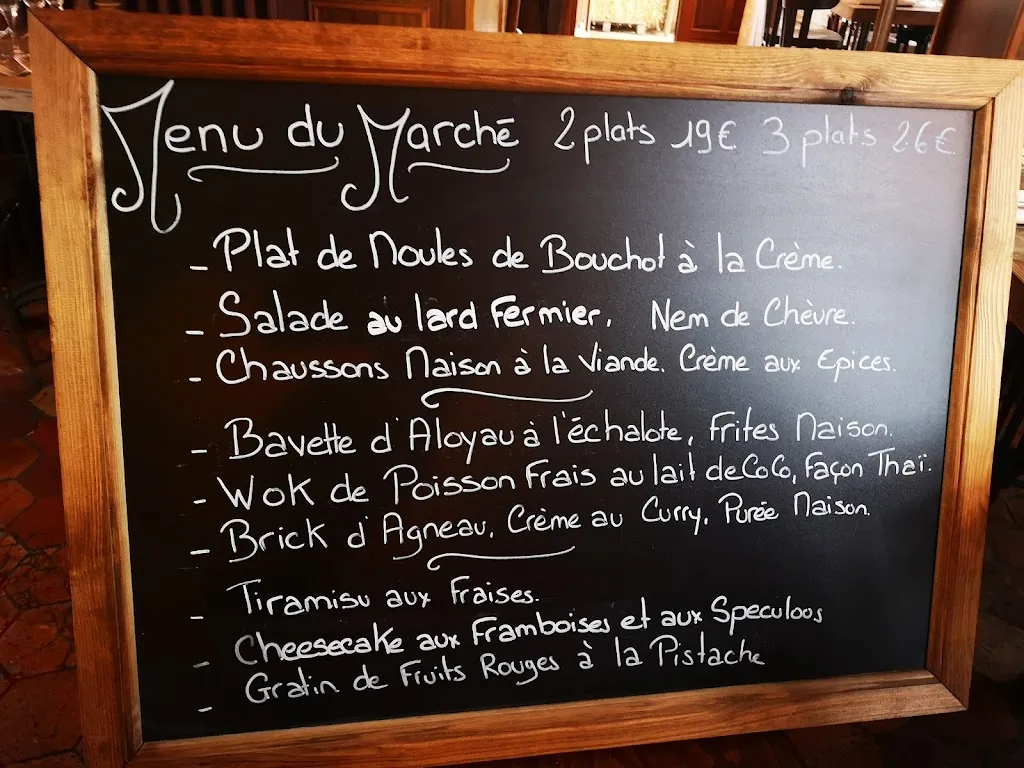 Menu du Marché 2 plats 19€ 3 plats 26€
- Plat de Moules de Bouchot à la Crème.
- Salade au lard Fermier, Nem de Chèvre.
- Chaussons Maison à la Viande. Crème aux Epices.
- Bavette d'Aloyau à l'échalote, Frites Maison.
- Wok de Poisson Frais au lait de CoCo, Façon Thaï.
- Brick d'Agneau, Crème au Curry, Purée Maison.
- Tiramisu aux Fraises.
- Cheesecake aux Framboises et aux Speculoos
- Gratin de Fruits Rouges à la Pistache